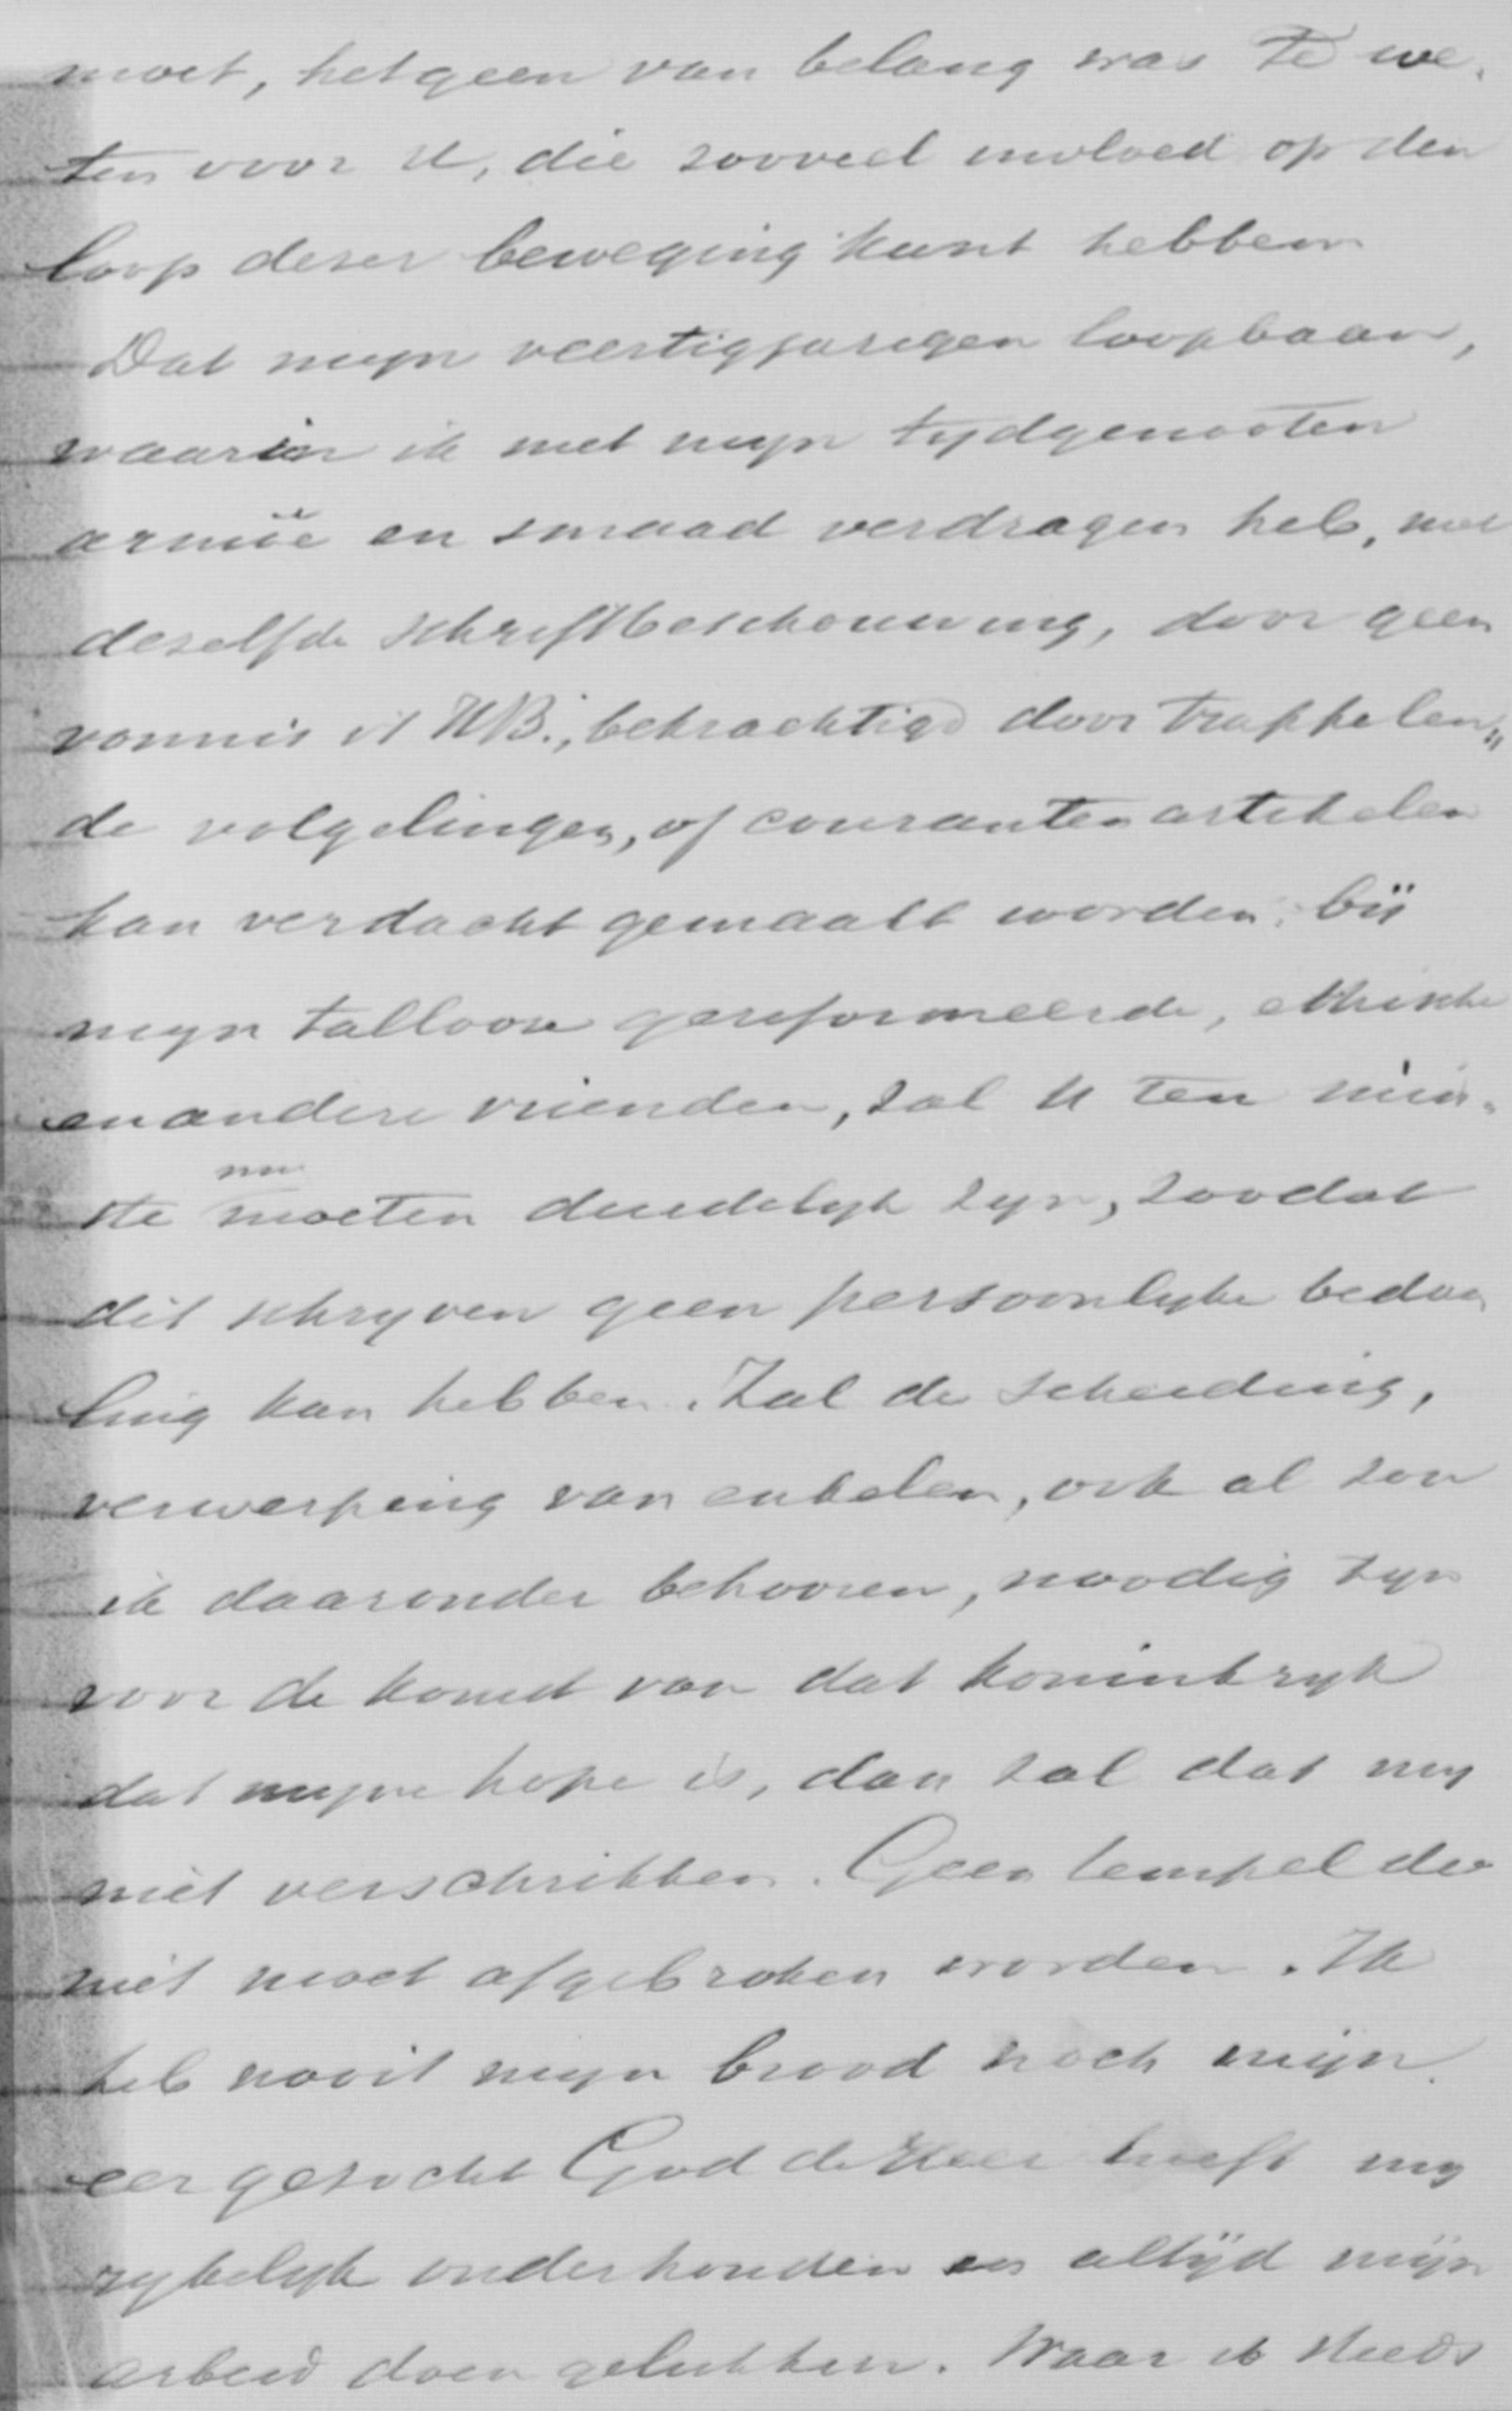 moet, hetgeen van belang was te we-
ten voor U, die zooveel invloed op den
loop dezer beweging kunt hebben
Dat mijn veertigjarigen loopbaan,
waarin ik met mijn tydgenooten
armoe en smaad verdragen heb, met
dezelfde schriftbeschouwing, door geen
vonnis v/ HB., bekrachtigd door trappelen„
de volgelingen, of couranten artikelen
kan verdacht gemaakt worden, bij
mijn talloose gereformeerde, ethische
en andere vrienden, zal U ten min-
nu
ste moeten duidelyk zyn, zoodat
dit schryven geen persoonlyke bedoe
ling kan hebben. Zal de scheiding,
verwerping van enkelen, ook al zou
ik daaronder behooren, noodig zyn
voor de komst van dat koninkryk
dat mijne hope is, dan zal dat my
niet verschrikken. Geen tempel die
niet moet afgebroken worden. Ik
heb nooit mijn brood noch mijn
eer gezocht God de Heer heeft my
rykelyk onderhouden en altijd mijn
arbeid doen gelukken. Waar ik steeds